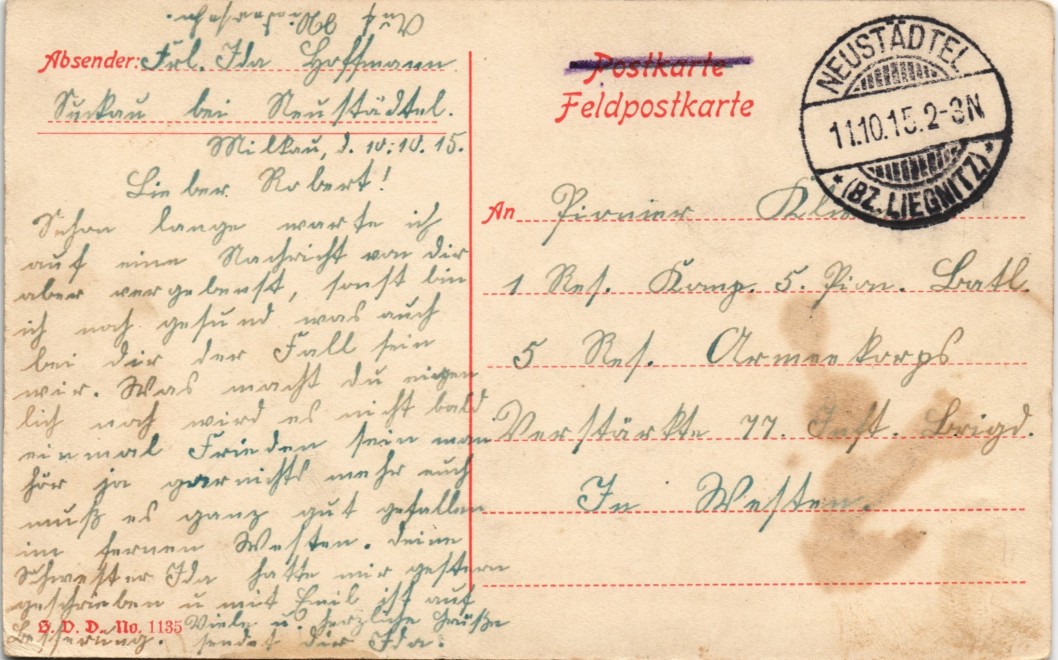 Auf Wiedersehn.
Absender: Frl. Ida Hoffmann
Suckau bei Neustädtel.
Milkau, d. 10.10.15.
Lieber Robert!
Schon lange warte ich
auf eine Nachricht von dir
aber vergebenst, sonst bin
ich noch gesund was auch
bei dir der Fall sein
wir. Was macht du eigen
lich noch wird es nicht bald
einmal Frieden sein man
hör ja garnichts mehr euch
muß es ganz gut gefallen
im fernen Westen. deine
Schwester Ida hatte mir gestern
geschrieben u mit Emil ist auf
Besserung. Viele u. herzliche Grüße
sendet dir Ida.
S. V. D. No. 1135
Postkarte
Feldpostkarte
NEUSTÄDTEL
11.10.15.2-3N
* (BZ. LIEGNITZ) *
An Pionier
1 Res. Komp. 5. Pion. Batl.
5 Res. Armeekorps
Verstärkte 77. Inft. Brigd.
In Westen.